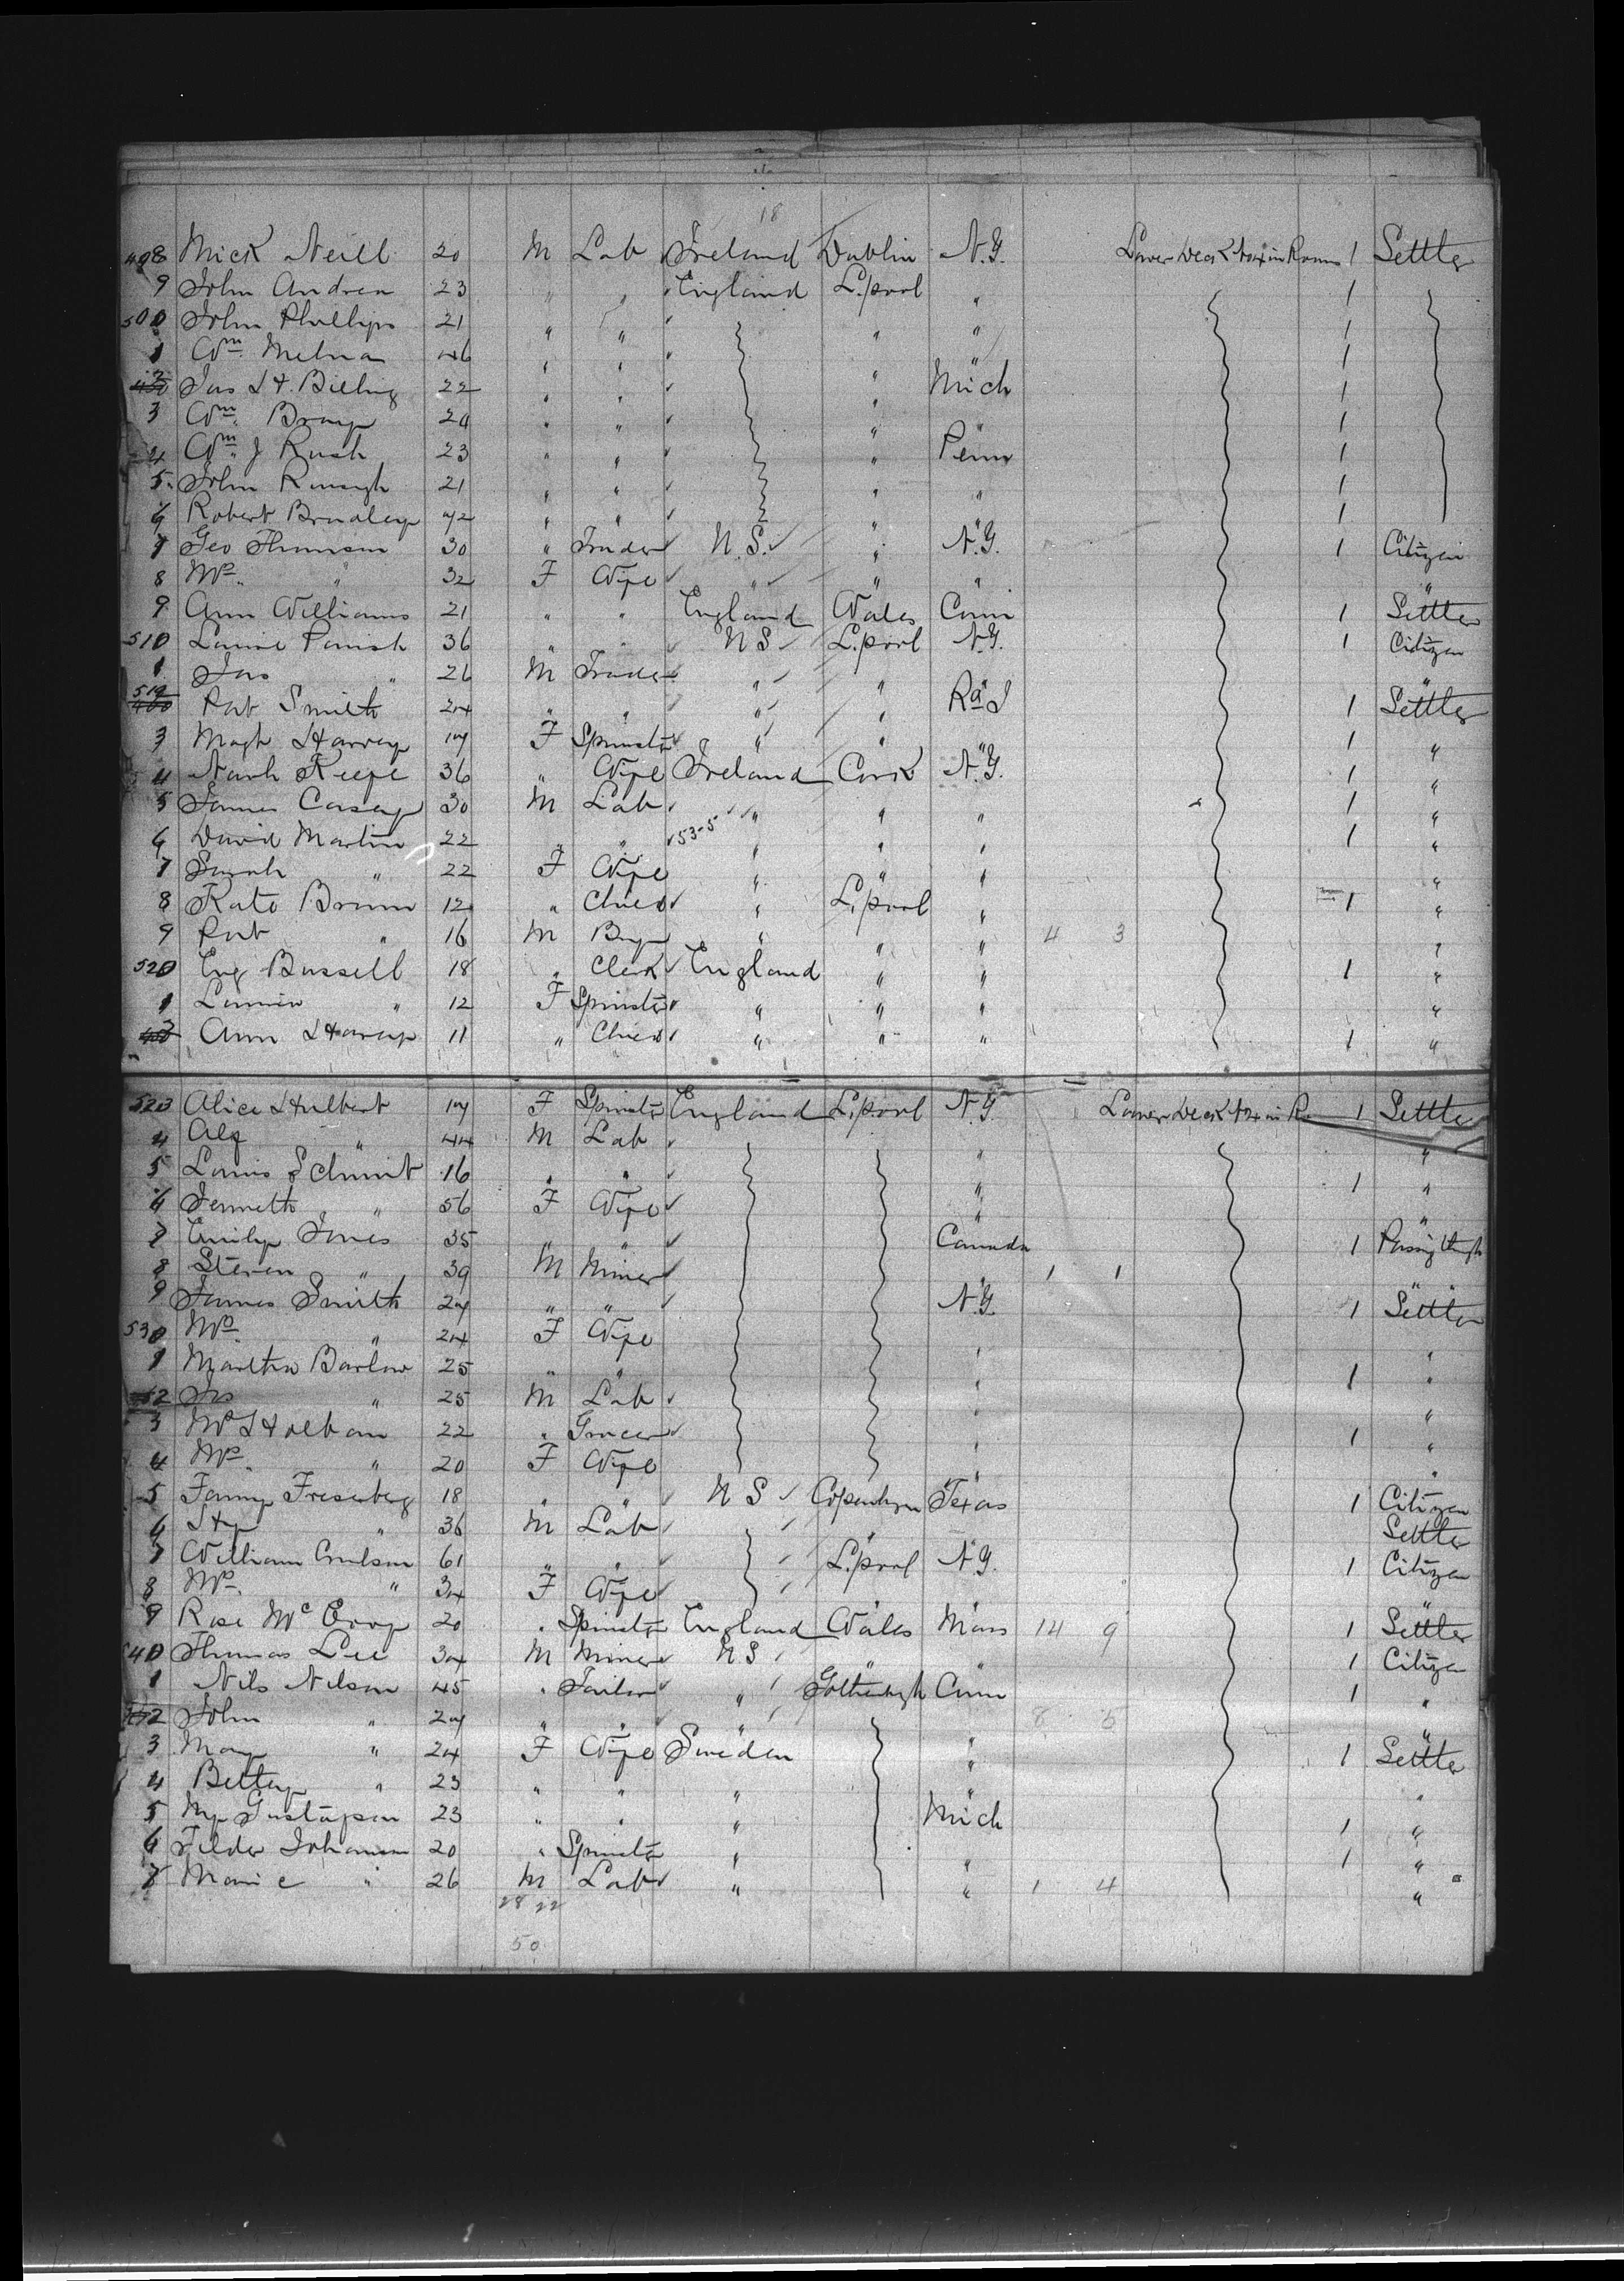 18
498 Mick Neill 20 M Lab Ireland Dublin N.Y. Lower Deck 1 Settler
9 John Andrea 23 " " England L.pool " 1
500 John Phillips 21 " " " " 1
1 Wm 46 " " " " 1
2 Jas H. Billing 22 " " " Mich 1
3 Wm Bray 24 " " " " 1
4 Wm J Rush 23 " " " Penn 1
5 John 21 " " " " 1
6 Robert Bradley 42 " " " " 1
7 Geo Thomson 30 " Trader U.S. " N.Y. 1 Citizen
8 Mrs " 32 F Wife " " " "
9 Ann Williams 21 " " England Wales Conn 1 Settler
510 Parish 36 " " U S L.pool N.Y. 1 Citizen
1 Jas " 26 M Trader " " " "
512 Robt Smith 24 " " " " 1 Settler
3 Magt Harvey 17 F Spinster " " " 1 "
4 Keefe 36 " Wife Ireland Cork N.Y. 1 "
5 James Casey 30 M Lab " " " 1 "
6 David Martin 22 " " " " " 1 "
7 Sarah " 22 F Wife " " " "
8 Kate Brown 12 " Child " L.pool " 1 "
9 Robt " 16 M Boy " " " 4 3 "
520 Bussell 18 " Clerk England " " 1 "
1 " 12 F Spinster " " " "
2 Ann Harvey 11 " Child " " " 1 "
523 Alice Hulbert 17 F Spinster England L.pool N.Y. Lower Deck 1 Settler
4 Alf " 44 M Lab " "
5 Louis Schmit 16 " " " 1 "
6 Jennett " 56 F Wife " "
7 Emily Jones 35 " " Canada 1 Passing through
8 Steven " 39 M Miner " 1 1
9 James Smith 27 " " N.Y. 1 Settler
530 Mrs " 24 F Wife " "
1 Martha Barlow 25 " " " 1 "
2 Jas " 25 M Lab " "
3 22 " Grocer " 1 "
4 Mrs " 20 F Wife " "
5 Fanny Freserberg 18 " " U S Copenhgen Texas 1 Citizen
6 Hy " 36 M Lab " " Settler
7 William 61 " " L.pool N.Y. 1 Citizen
8 Mrs " 34 F Wife " " "
9 Rose Mc 20 " Spinster England Wales Mass 14 9 1 Settler
540 Thomas Lee 34 M Miner U S " " 1 Citizen
1 Nils Nilson 45 " Tailor " Conn 1 "
2 John " 27 " " " " 8 5 "
3 May " 24 F Wife Sweden " 1 Settler
4 Betty " 23 " " " " "
5 23 " " " Mich 1 "
6 Johanson 20 " Spinster " " 1 "
7 " 26 M Lab " " 1 4 "
28 22
50